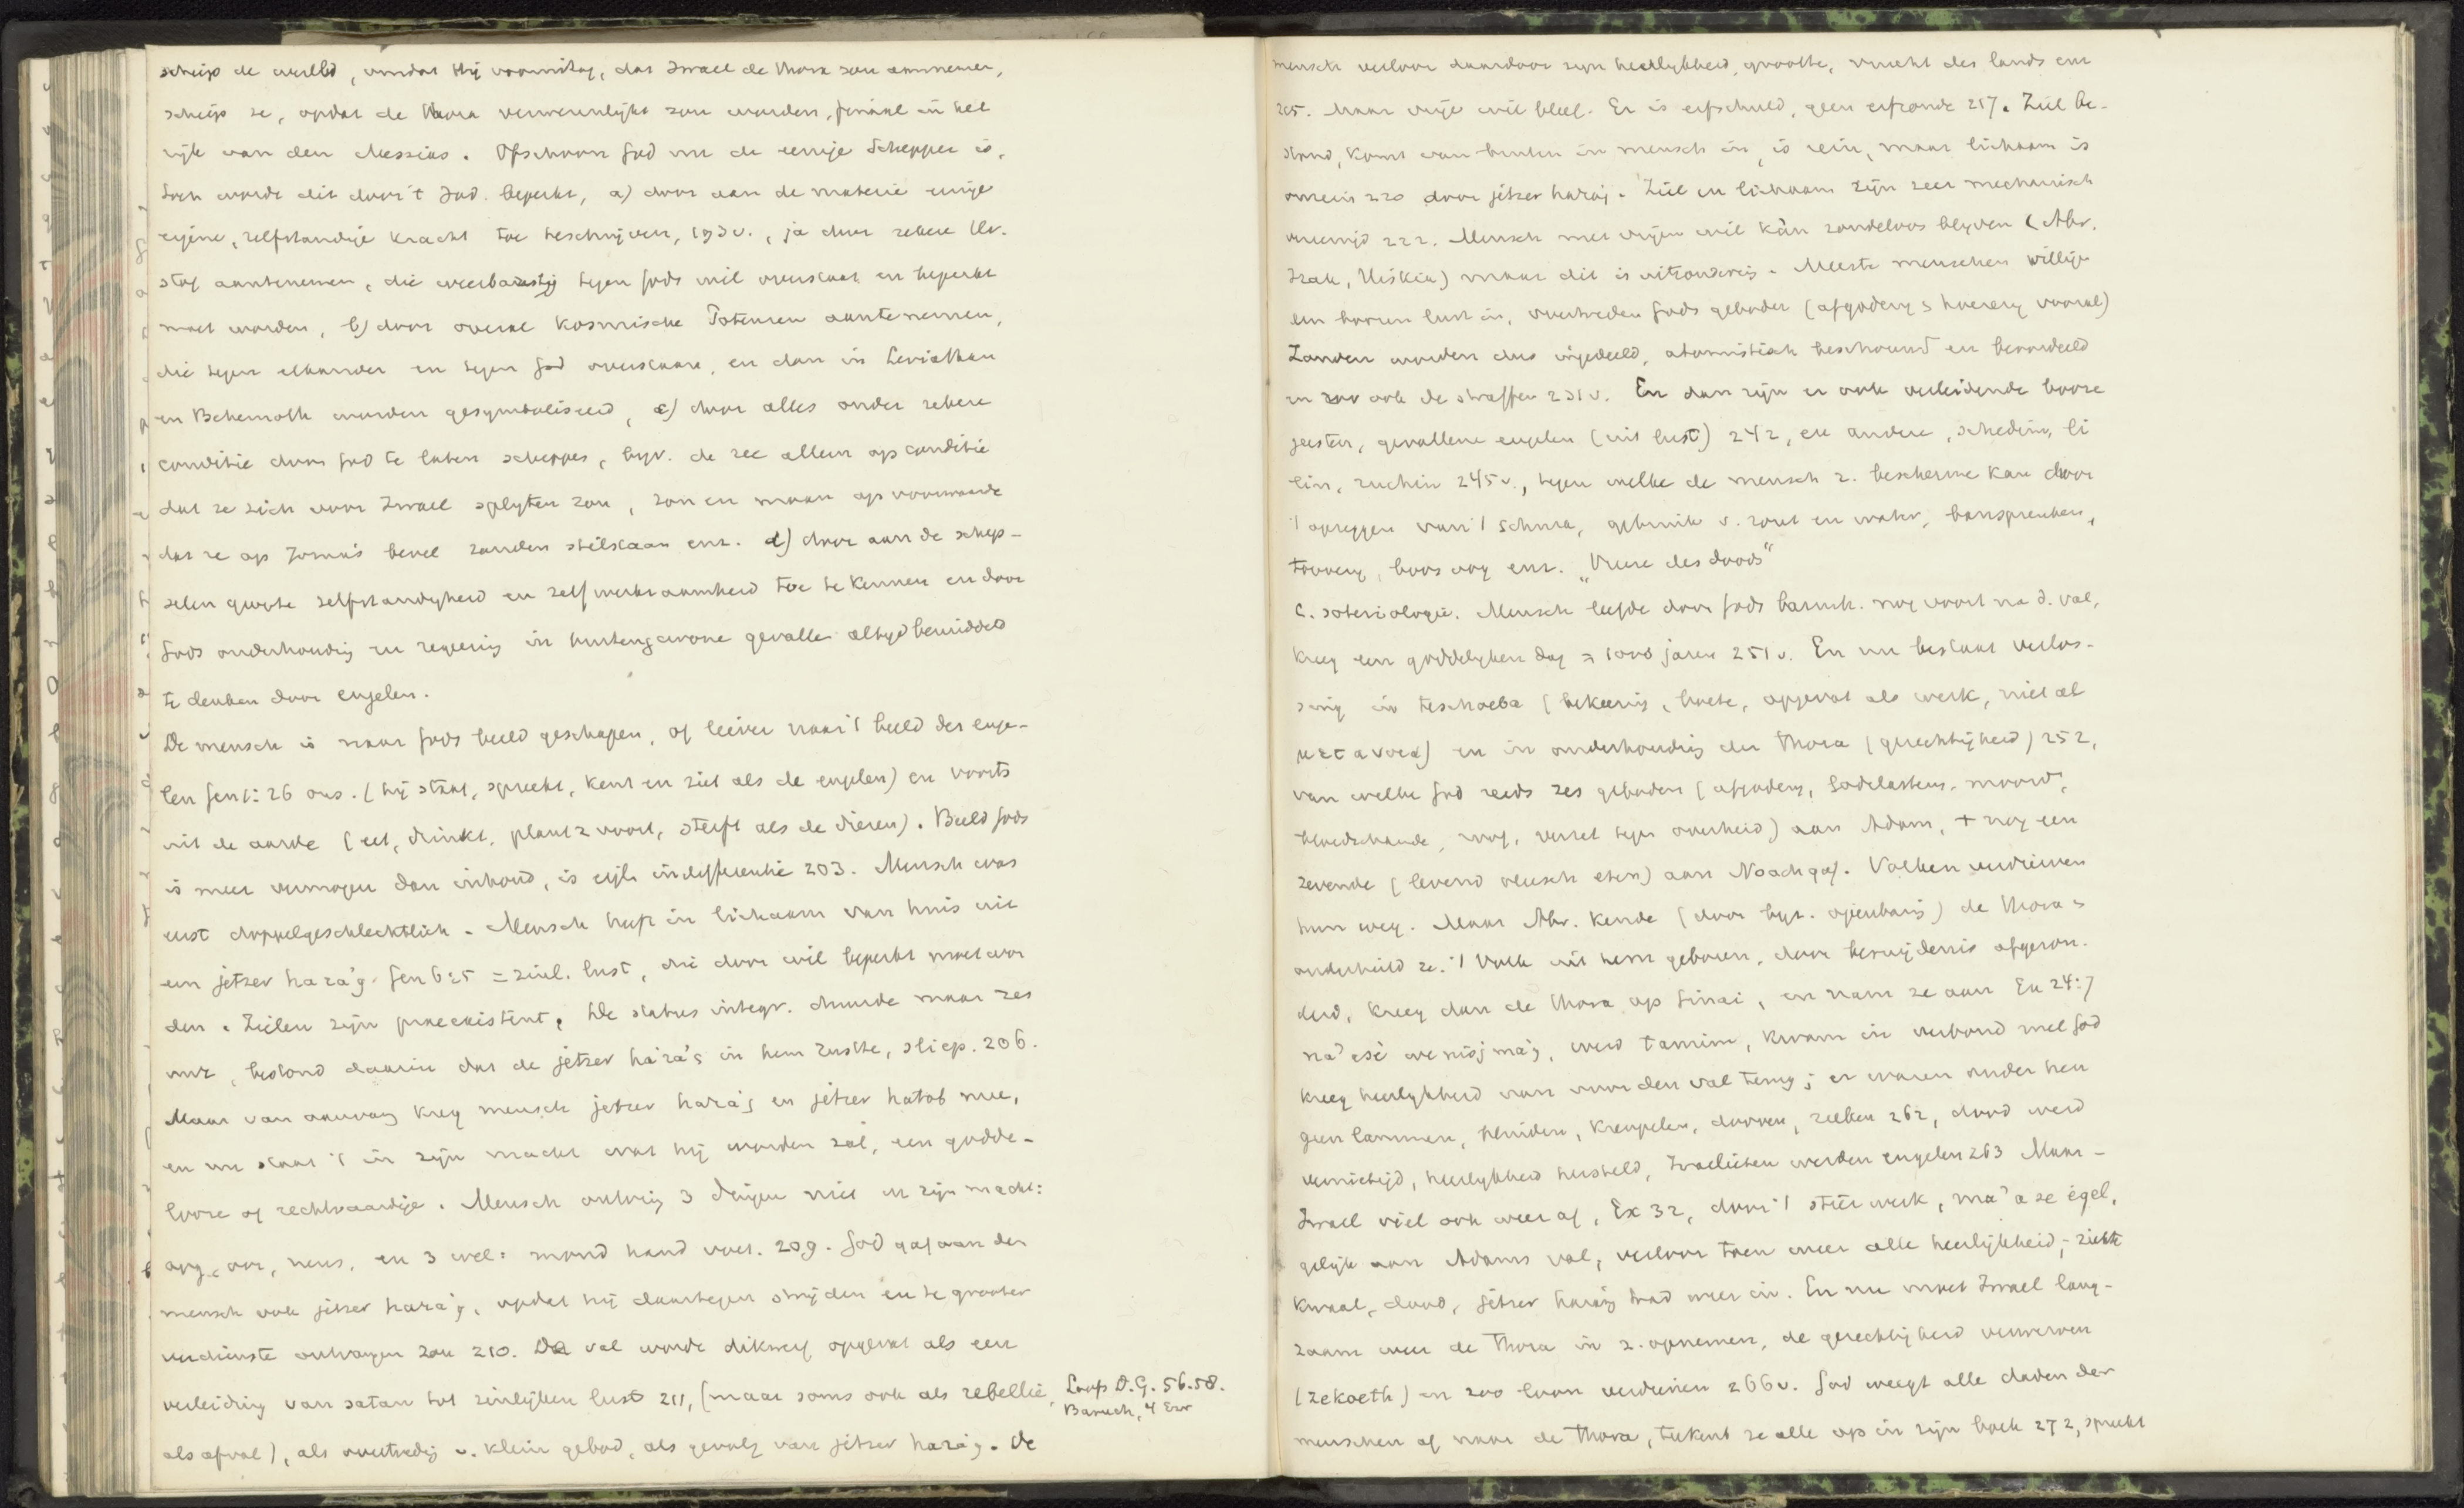 schiep de wereld, omdat Hij vooruitzag, dat Israel de Thora zou aannemen,
schiep ze, opdat de Thora verwerkelijkt zou worden, finaal in het
rijk van den Messias. Ofschoon God nu de eenige Schepper is,
toch wordt dit door 't Jod. beperkt, a) door aan de materie eenige
eigene, zelfstandige kracht toe te schrijven, 193 v., ja door zekere
stof aantenemen, die weerbarstig tegen Gods wil overstaat en beperkt
moet worden, b) door overal kosmische Potenzen aantenemen,
die tegen elkander en tegen God overstaan, en dan in Leviathan
en Behemoth worden gesymboliseerd, c) door alles onder zekere
conditie door God te laten scheppen, byv. de zee alleen op conditie
dat ze zich voor Israel splyten zou, zon en maan op voorwaarde
dat ze op Jozua's bevel zouden stilstaan enz. d) door aan de schep-
selen groote zelfstandigheid en zelfwerkzaamheid toe te kennen en door
Gods onderhouding en regeering in buitengewone gevallen altyd bemiddeld
te denken door engelen.
De mensch is naar Gods beeld geschapen, of liever naar 't beeld der enge-
len Gen 1:26 ons. (hij staat, spreekt, kent en ziet als de engelen) en voorts
uit de aarde (eet, drinkt, plant z voort, sterft als de dieren). Beeld Gods
is meer vermogen dan inhoud, is eigl. indifferentie 203. Mensch was
eerst doppelgeschlechtlich. Mensch heeft in lichaam van huis uit
een jetzer hara'g Gen 6:5 = zinl. lust, die door wil beperkt moet wor
den. Zielen zijn praeexistent. De status integr. duurde maar zes
uur, bestond daarin dat de jetzer hara'g in hem rustte, sliep. 206.
Maar van aanvang kreeg mensch jetzer hara'g en jetzer hatob mee,
en nu staat 't in zijn macht wat hij worden zal, een godde-
looze of rechtvaardige. Mensch ontving 3 dingen niet in zijn macht:
oog, oor, neus, en 3 wel: mond hand voet. 209. God gaf aan den
mensch ook jetzer hara'g, opdat hij daartegen strijden en te grooter
verdienste ontvangen zou 210. De val wordt dikwerf opgevat als een
verleiding van satan tot zinlijken lust 211, (maar soms ook als rebellie,
als afval), als overtreding v. klein gebod, als gevolg van jetzer hara'g. De
Loofs D.G. 56.58.
Baruch, 4 Ezr
mensch verloor daardoor zyn heerlykheid, grootte, vrucht des lands enz
215. Maar vrije wil bleef. Er is erfschuld, geen erfzonde 217. Ziel be-
stond, komt van buiten in mensch in, is rein, maar lichaam is
onrein 220 door jetzer hara'g. Ziel en lichaam zijn zeer mechanisch
vereenigd 222. Mensch met vrijen wil kàn zondeloos blyven (Abr.
Izak, Hiskia) maar dit is uitzondering. Meeste menschen willigen
den boozen lust in, overtreden Gods geboden (afgodery & hoerery vooral)
Zonden worden dus ingedeeld, atomistisch beschouwd en beoordeeld
en zoo ook de straffen 231 v. En dan zijn er ook verleidende booze
geesten, gevallene engelen (uit lust) 242, en andere, schedim, li
lin, ruchin 245 v., tegen welke de mensch z. beschermen kan door
't opzeggen van 't schma, gebruik v. zout en water, banspreuken,
toovery, boos oog enz. „Vreeze des doods"
C. soteriologie. Mensch leefde door Gods barmh. nog voort na d. val,
kreeg een goddelyken dag = 1000 jaren 251 v. En nu bestaat verlos-
sing in teschoeba (bekeering, boete, opgevat als werk, niet als
μετανοια) en in onderhouding der Thora (gerechtigheid) 252,
van welke God reeds zes geboden (afgodery, Godslastering, moord,
bloedschande, roof, verzet tegen overheid) aan Adam, + nog een
zevende (levend vleesch eten) aan Noach gaf. Volken verdierven
hun weg. Maar Abr. kende (door byz. openbaring) de Thora &
onderhield ze. 't Volk uit hem geboren, door besnijdenis afgezon-
derd, kreeg dan de Thora op Sinai, en nam ze aan Ex 24:7
na'asè wenisjma'g, werd tamim, kwam in verbond met God
kreeg heerlykheid van voor den val terug; er waren onder hen
geen lammen, blinden, kreupelen, dooven, zieken 262, dood werd
vernietigd, heerlykheid hersteld, Israelieten werden engelen 263 Maar -
Israel viel ook weer af, Ex 32, door 't stierwerk, ma'ase égel,
gelijk aan Adams val, verloor toen weer alle heerlijkheid; ziekte
kwaal, dood, jetzer hara'g trad weer in. En nu moet Israel lang-
zaam weer de Thora in z. opnemen, de gerechtigheid verwerven
(zekoeth) en zoo loon verdienen 266 v. God weegt alle daden der
menschen af naar de Thora, teekent ze alle op in zijn boek 272, spreekt